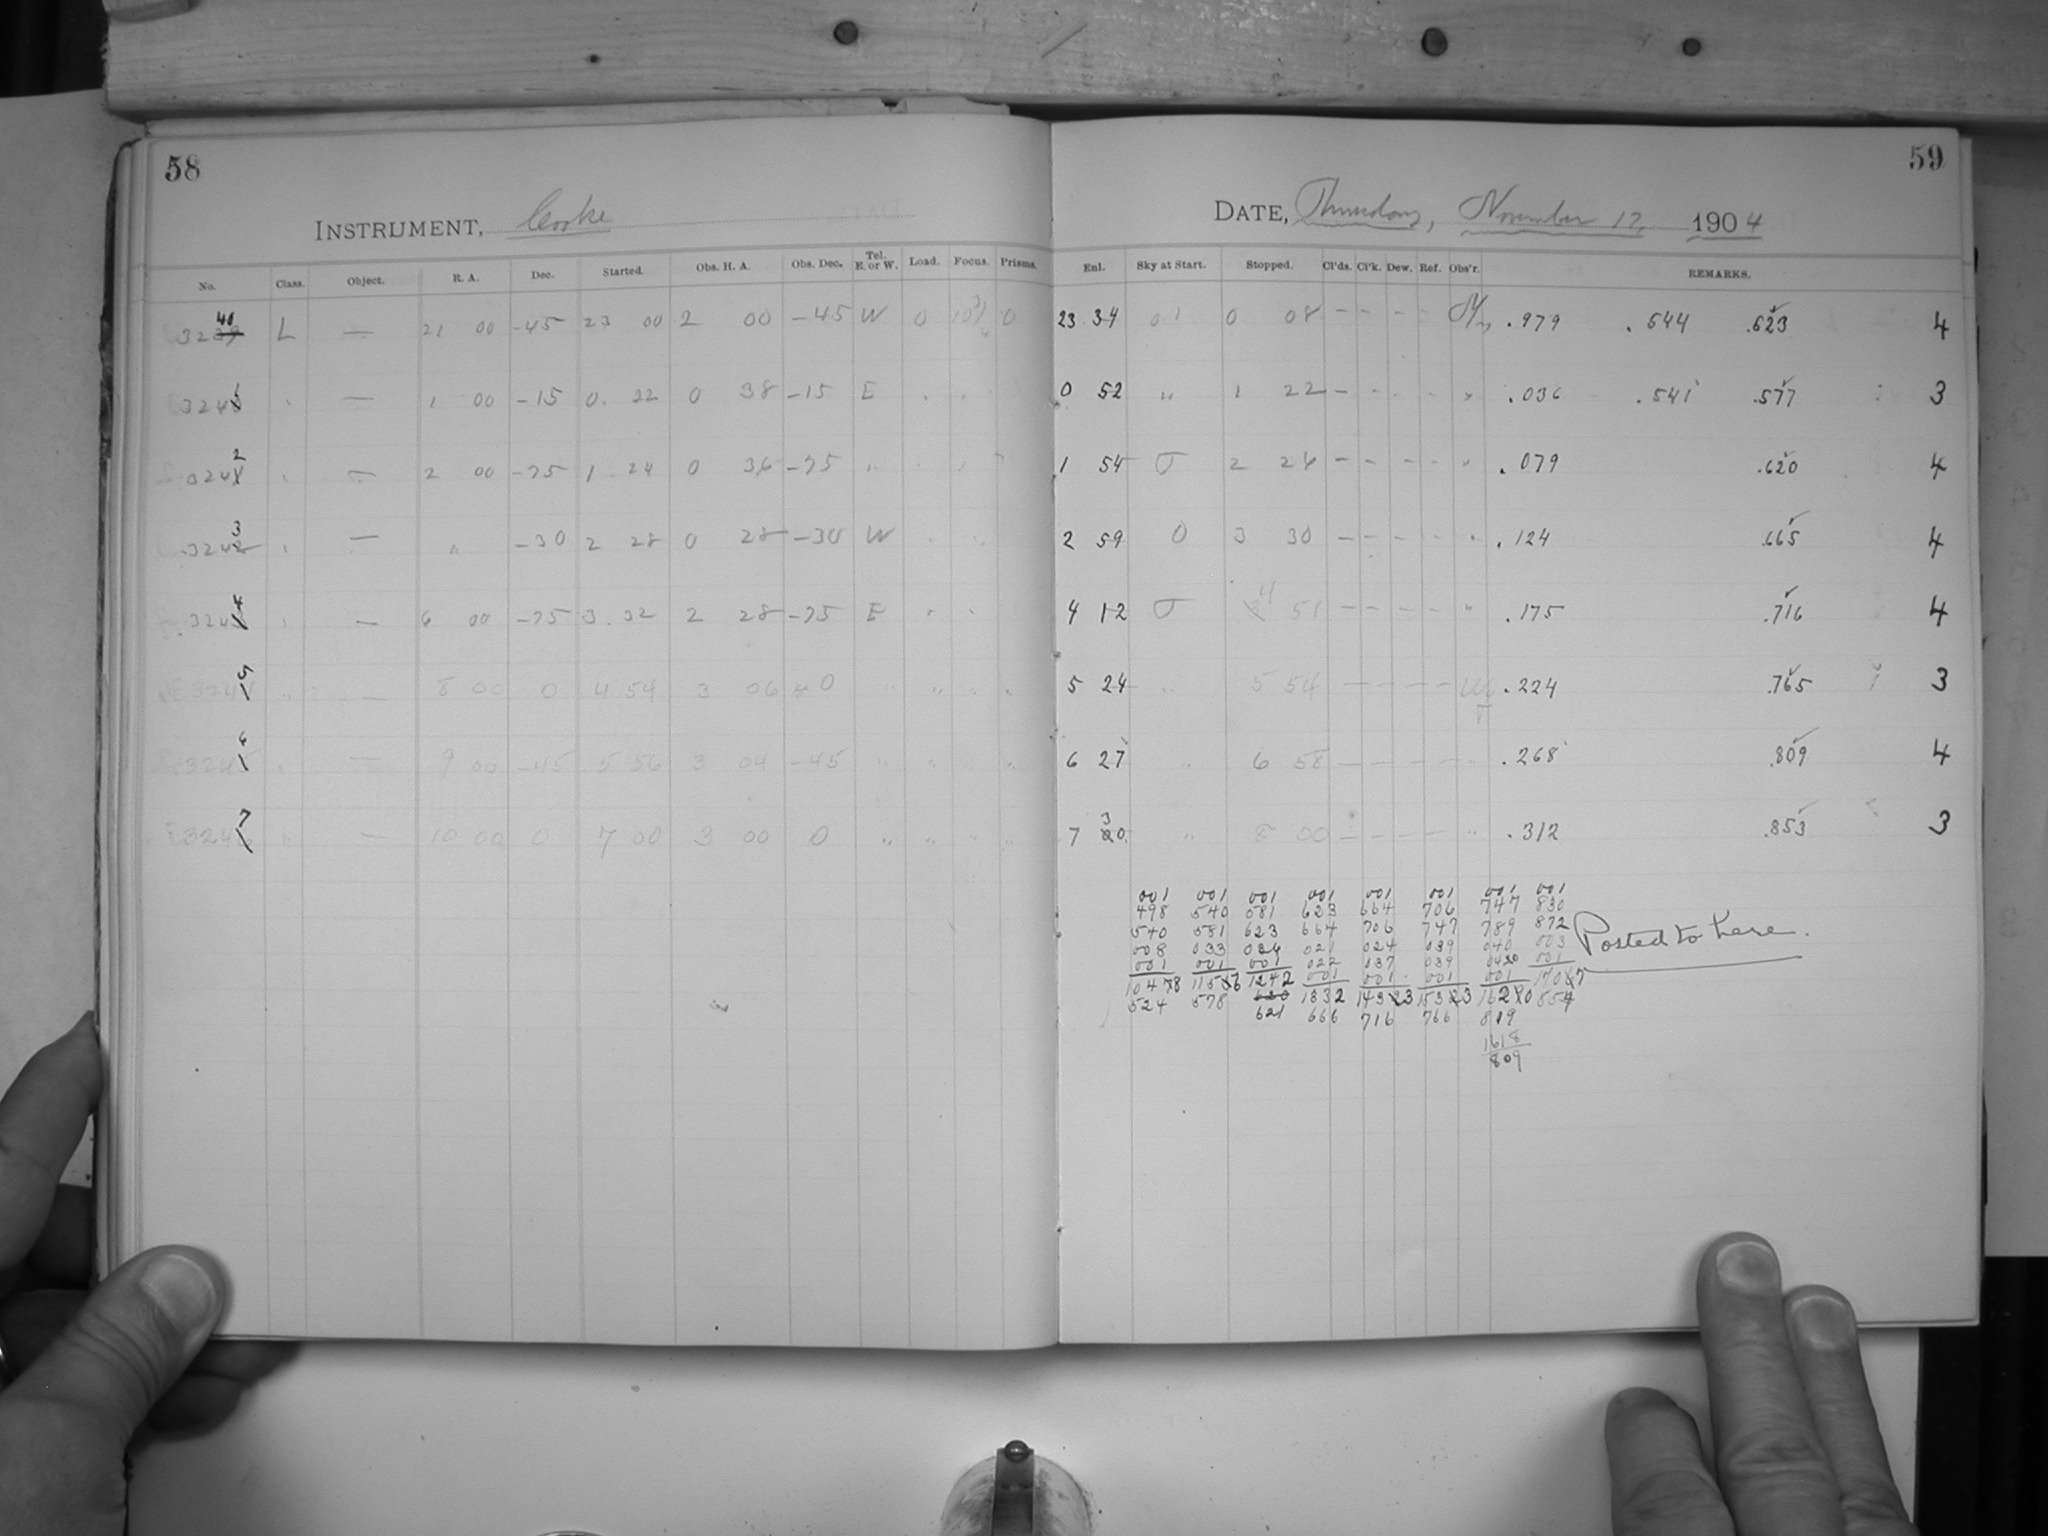 58
INSTRUMENT, Cooke
No. Class. Object. R. A. Dec. Started. Obs. H. A. Obs. Dec. Tel. E. or W. Load. Focus. Prisms.
3240 L — 21 00 -45 23 00 2 00 -45 W 0 0
3241 " — 1 00 -15 0 22 0 38 -15 E " "
3242 " — 2 00 -75 1 24 0 36 -75 " " "
3243 " — " -30 2 28 0 28 -30 W " "
3244 " — 6 00 -75 3 32 2 28 -75 E " "
3245 " — 8 00 0 4 54 3 06 0 " " " "
3246 " — 9 00 -45 5 56 3 04 -45 " " " "
3247 " — 10 00 0 7 00 3 00 0 " " " "
59
DATE, Thursday, November 17, 1904
Enl. Sky at Start. Stopped. Cl'ds. Cl'k. Dew. Ref. Obs'r. REMARKS.
23 34 0 08 - - - - .979 .644 .623 4
0 52 " 1 22 - - - - " .036 .541 .577 3
1 54 2 24 - - - - " .079 .620 4
2 59 0 3 30 - - - - " .124 .665 4
4 12 4 51 - - - - " .175 .716 4
5 24 " 5 54 - - - - .224 .765 3
6 27 " 6 58 - - - - " .268 .809 4
7 30 " 8 00 - - - - " .312 .853 3
001 001 001 001 001 001 001 001
498 540 581 623 664 706 747 830
540 581 623 664 706 747 789 872
008 033 034 021 024 039 040 003
001 001 001 022 037 039 001
001 001 001 001
524 578 621 666 716 766 819 854
1618
809
Posted to here.